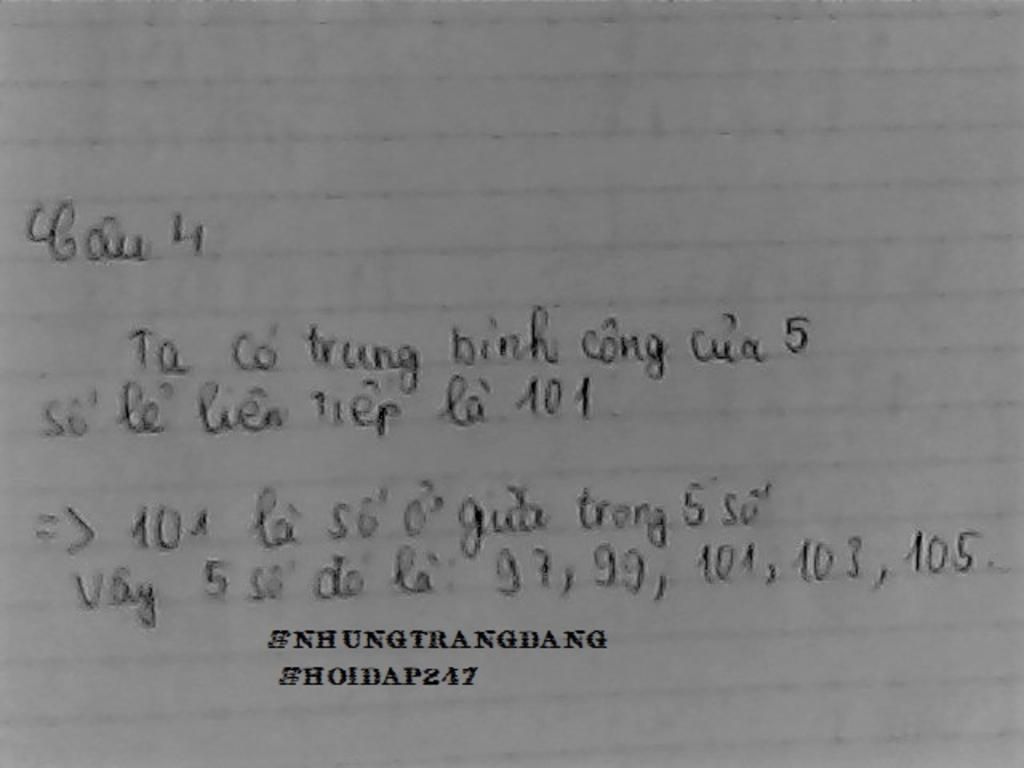 Câu 4
Ta có trung bình cộng của 5
số lẻ liên tiếp là 101.
=> 101 là số ở giữa trong 5 số
Vậy 5 số đó là: 97, 99, 101, 103, 105.
#NHUNGTRANGDANG
#HOIDAP247